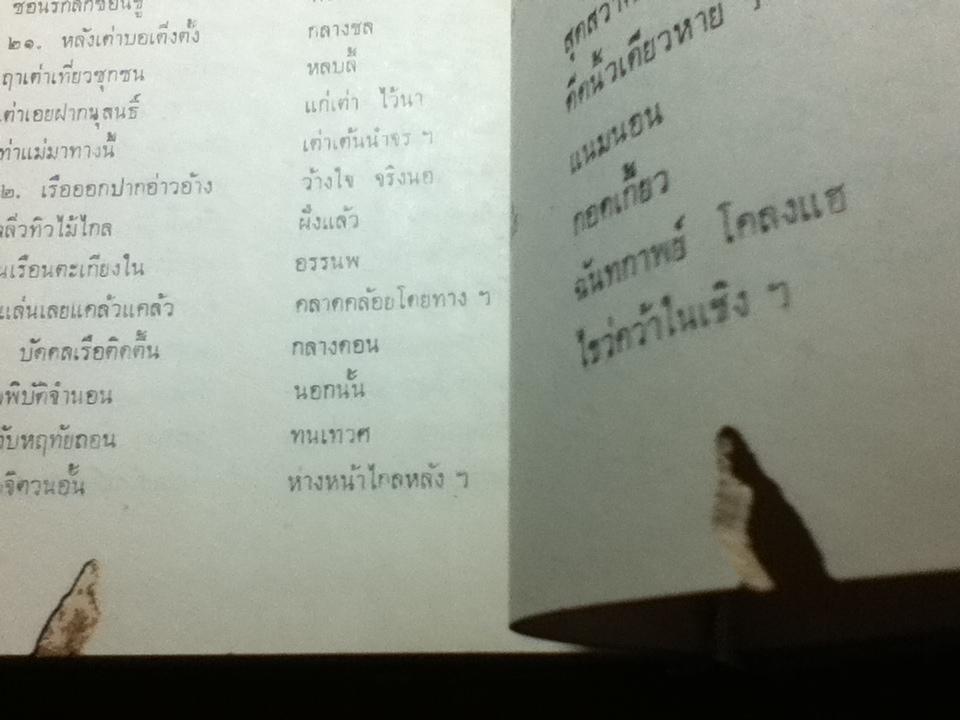 ซ่อนรักลักซ่อนชู้
๒๑. หลังเต่าบอเติ่งตั้ง กลางชล
ฤาเต่าเที่ยวซุกซน หลบลี้
เต่าเอยฝากนุสนธิ์ แก่เต่า ไว้นา
ท่าแม่มาทางนี้ เต่าเต้นนำจร ฯ
๒. เรือออกปากอ่าวอ้าง ว้างใจ จริงนอ
ลิ่วทิวไม้ไกล ผึ้งแล้ว
นเรือนตะเกียงใน อรรนพ
แล่นเลยแคล้วแคล้ว คลาดคล้อยโดยทาง ฯ
บัดดลเรือติดตื้น กลางดอน
พิบัติจำนอน นอกนั้น
ับหฤทัยถอน ทนเทวศ
จิตวนอั้น ห่างหน้าไกลหลัง ฯ
ดีดนิ้วเดียวหาย
แนมนอน
กอดเกี้ยว
ฉันทกาพย์ โคลงแฮ
ไขว่คว้าในเชิง ฯ